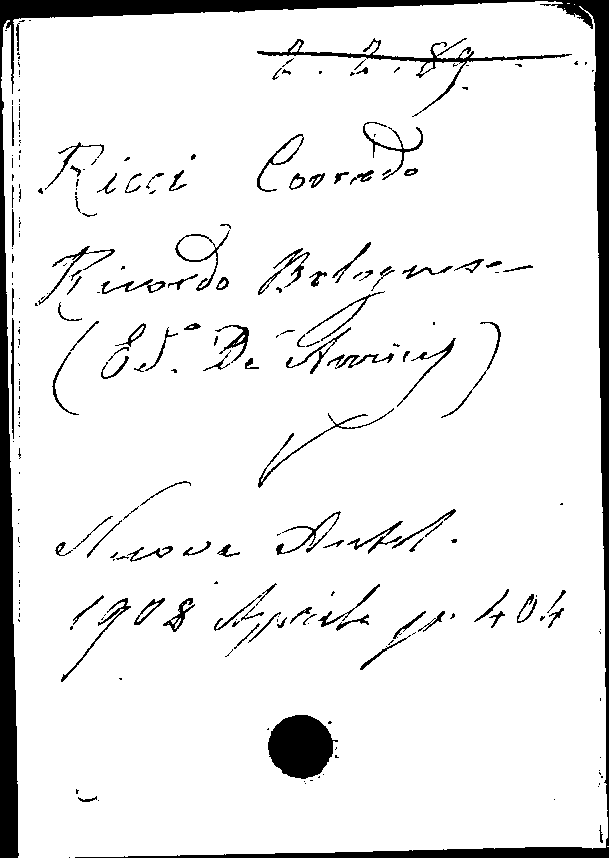 2. 2. 89.
Ricci Corrado
Ricordo Bolognese
(Ed.º De Amicis)
Nuova Antol.
1908 Aprile p. 404